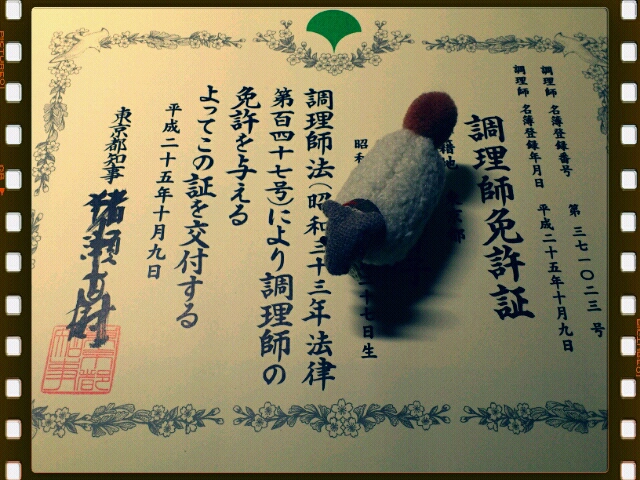 調理師免許証
調理師 名簿登録番号 第三七一〇二三号
調理師 名簿登録年月日 平成二十五年十月九日
籍地
昭和
十七日生
調理師法(昭和三十三年法律
第百四十七号)により調理師の
免許を与える
よってこの証を交付する
平成二十五年十月九日
東京都知事 猪瀬直樹